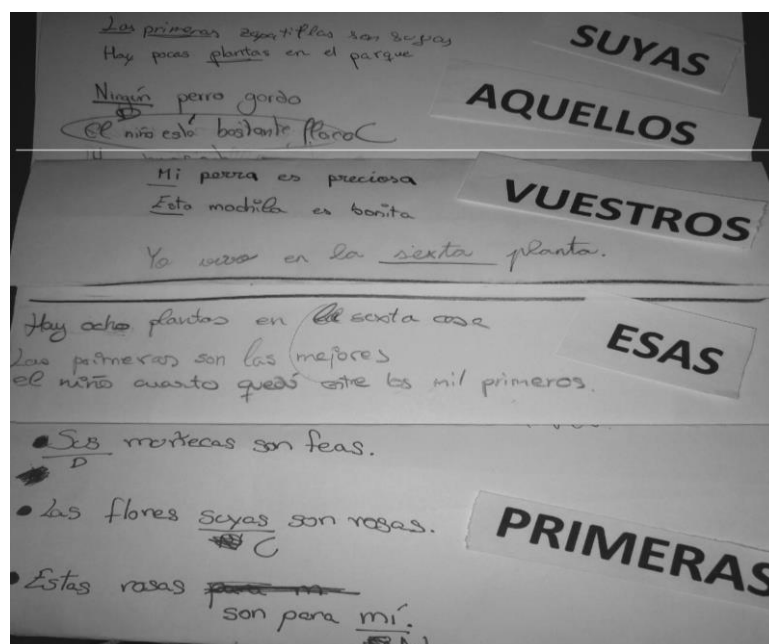 Las primeras zapatillas son suyas
SUYAS
Hay pocas plantas en el parque
Ningún perro gordo
D
AQUELLOS
el niño está bastante flaco C
Mi perra es preciosa
VUESTROS
Esta mochila es bonita
Yo vivo en la sexta planta.
Hay ocho plantas en la sexta casa
ESAS
Las primeras son las mejores
el niño cuarto quedó entre los mil primeros.
• Sus muñecas son feas.
D
• Las flores suyas son rosas.
C
PRIMERAS
• Estas rosas
son para mí.
N